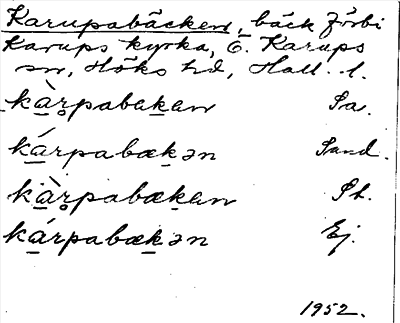 Karupabäcken, bäck förbi
Karups kyrka, Ö. Karups
sn, Höks hd, Hall. l.
kàr̥pabakan Sa.
kárpabækən Sand.
kàr̥pabækan St.
kárpabækən Ej.
1952.